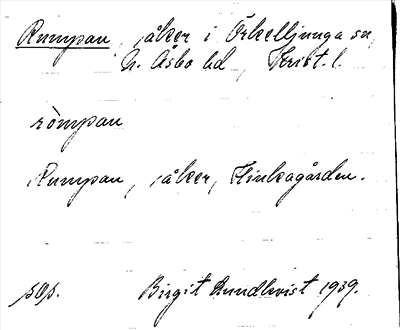 Rumpan, åker i Örkelljunga sn,
N. Åsbo hd, Krist. l.
ròmpan
Rumpan, åker, Flinkagården.
sqs. Birgit Rundkvist 1939.